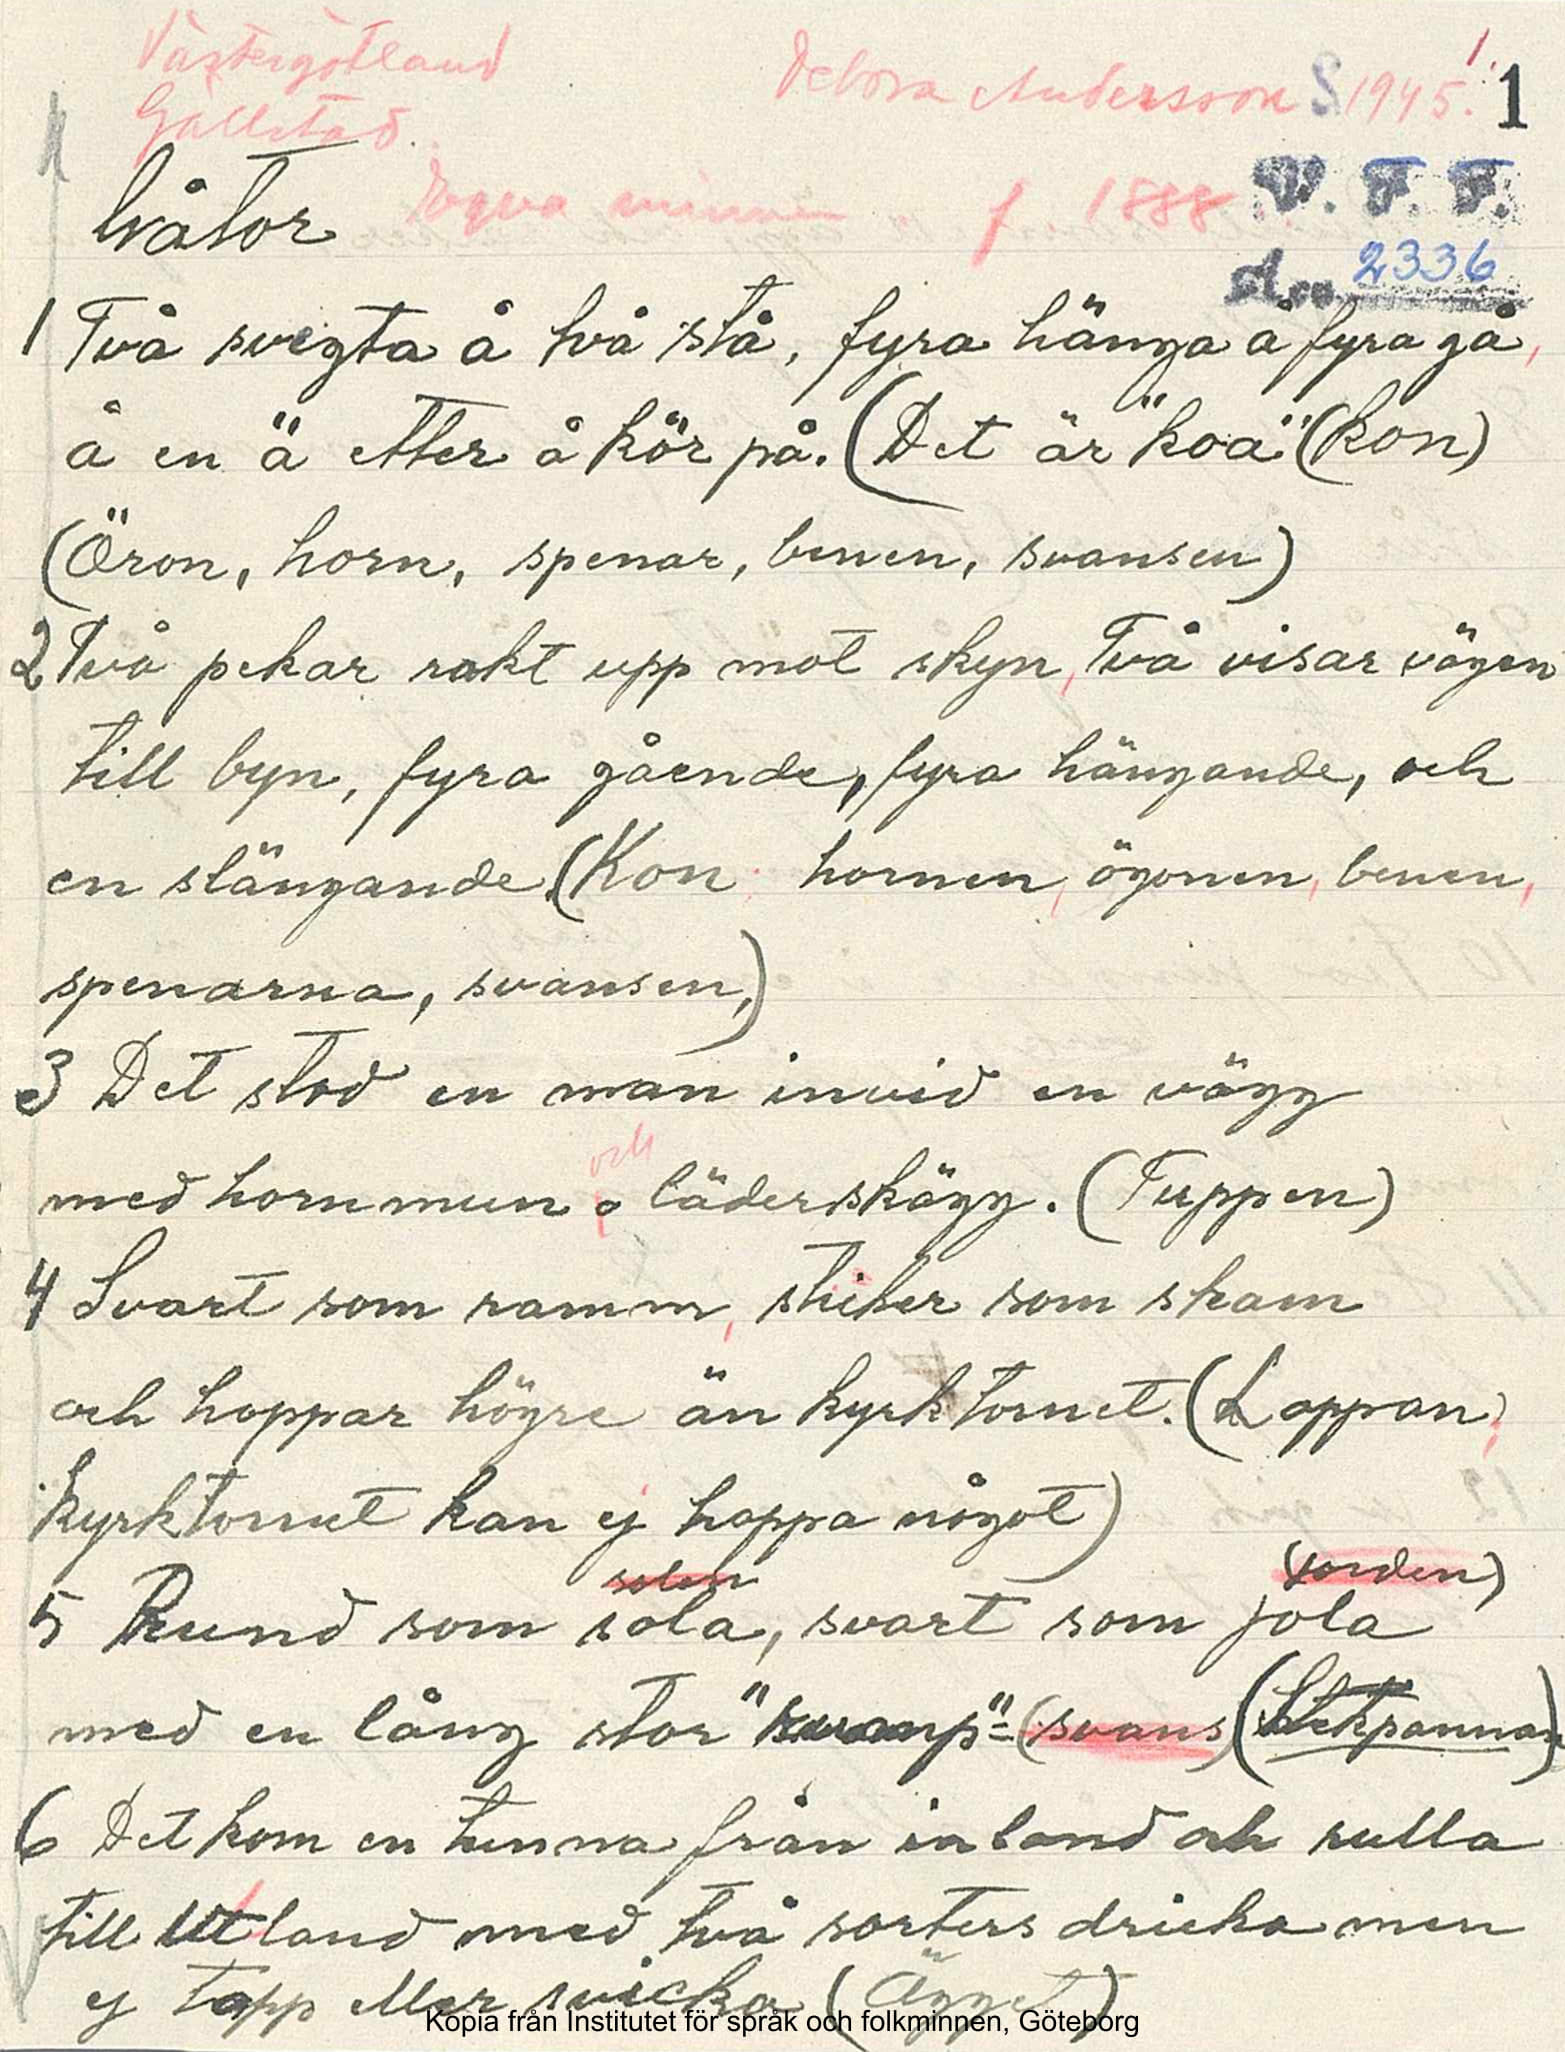 Västergötland
Gällstad.
Debora Andersson S 1945. 1
1
Egna minnen f 1888
V. F. F.
d.no 2336
Gåtor
1 Två svegta å två stå, fyra hänga å fyra gå,
å en ä etter å kör på. (Det är "koa" (kon)
(Öron, horn, spenar, benen, svansen)
2 Två pekar rakt upp mot skyn, Två visar vägen
till byn, fyra gående, fyra hängande, och
en slängande. (Kon hornen, ögonen, benen,
spenarna, svansen,)
3 Det stod en man invid en vägg
med hornmun o och läderskägg. (Tuppen)
4 Svart som ramm, sticker som skam
och hoppar högre än kyrktornet. (Loppan,
kyrktornet kan ej hoppa något)
solen (jorden)
5 Rund som sola, svart som jola
med en lång stor "rump" = (svans) (Stekpannan)
6 Det kom en tunna från inland och rulla
till Utland med två sorters dricka men
ej tapp eller svicka (Ägget)
Kopia från Institutet för språk och folkminnen, Göteborg